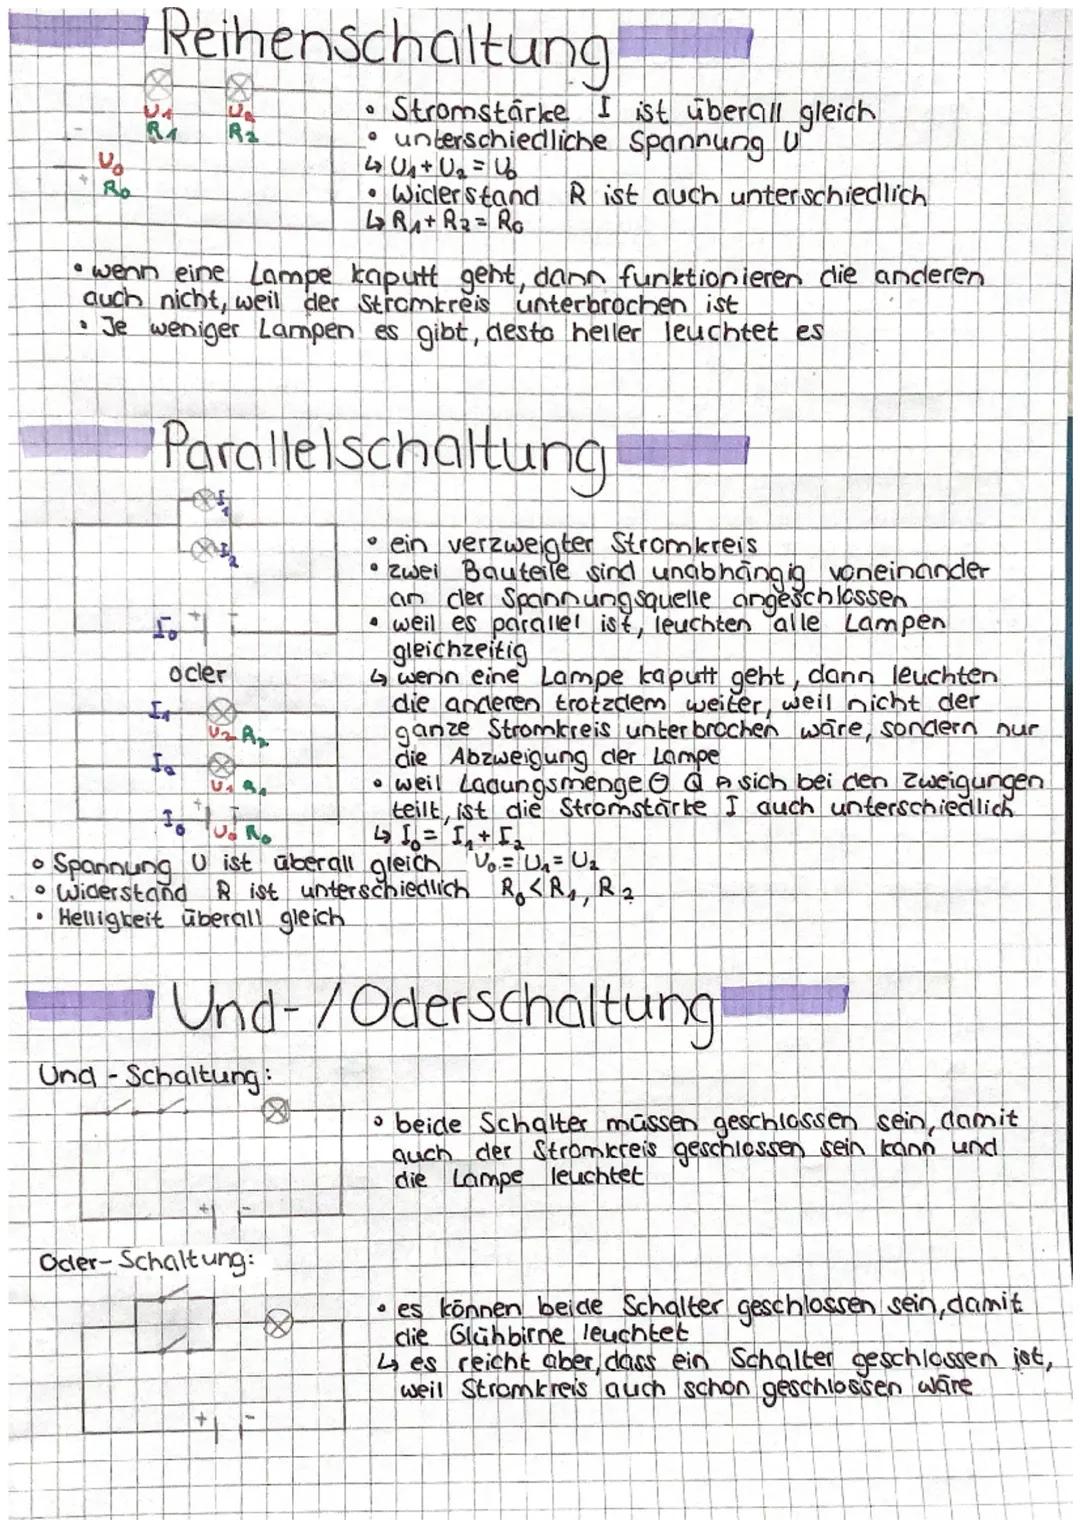 Reihenschaltung
U₁ U₂
R₁ R₂
-
U₀
+
R₀
• Stromstärke I ist überall gleich
• unterschiedliche Spannung U
↳ U₁ + U₂ = U₀
• Widerstand R ist auch unterschiedlich
↳ R₁ + R₂ = R₀
• wenn eine Lampe kaputt geht, dann funktionieren die anderen
auch nicht, weil der Stromkreis unterbrochen ist
• Je weniger Lampen es gibt, desto heller leuchtet es
Parallelschaltung
I₁
I₂
I₀ + -
oder
I₁
U₂ R₂
I₂
U₁ R₁
+ -
I₀ U₀ R₀
• ein verzweigter Stromkreis
• zwei Bauteile sind unabhängig voneinander
an der Spannungsquelle angeschlossen
• weil es parallel ist, leuchten alle Lampen
gleichzeitig
↳ wenn eine Lampe kaputt geht, dann leuchten
die anderen trotzdem weiter, weil nicht der
ganze Stromkreis unterbrochen wäre, sondern nur
die Abzweigung der Lampe
• weil Ladungsmenge ⊖ Q sich bei den Zweigungen
teilt, ist die Stromstärke I auch unterschiedlich
↳ I₀ = I₁ + I₂
• Spannung U ist überall gleich U₀ = U₁ = U₂
• Widerstand R ist unterschiedlich R₀ < R₁, R₂
• Helligkeit überall gleich
Und-/Oderschaltung
Und-Schaltung:
+ -
• beide Schalter müssen geschlossen sein, damit
auch der Stromkreis geschlossen sein kann und
die Lampe leuchtet
Oder-Schaltung:
+ -
• es können beide Schalter geschlossen sein, damit
die Glühbirne leuchtet
↳ es reicht aber, dass ein Schalter geschlossen ist,
weil Stromkreis auch schon geschlossen wäre